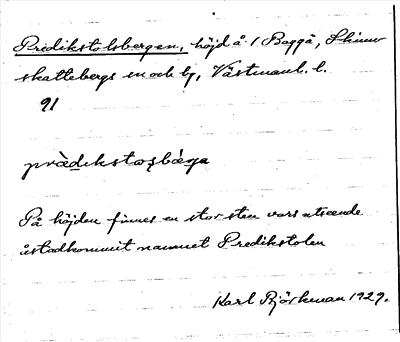 Predikstolsbergen, höjd å 1 Baggå, Skinn-
skattebergs sn och bg, Västmanl. l.
91
prædikstωlsbærja
På höjden finnes en stor sten vars utseende
åstadkommit namnet Predikstolen
Karl Björkman 1929.